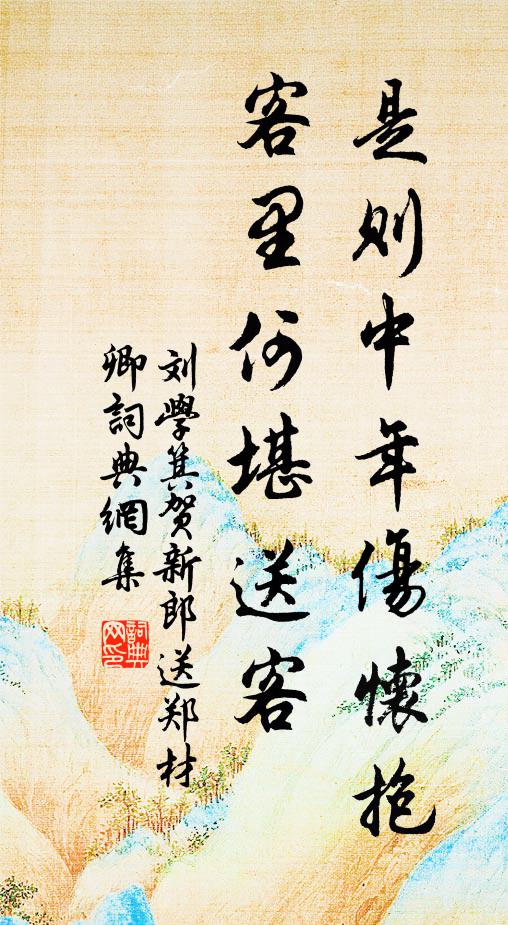 是则中年傷懷抱
客里何堪送客
刘學箕贺新郎送郑材
卿詞典網集
詞典网印